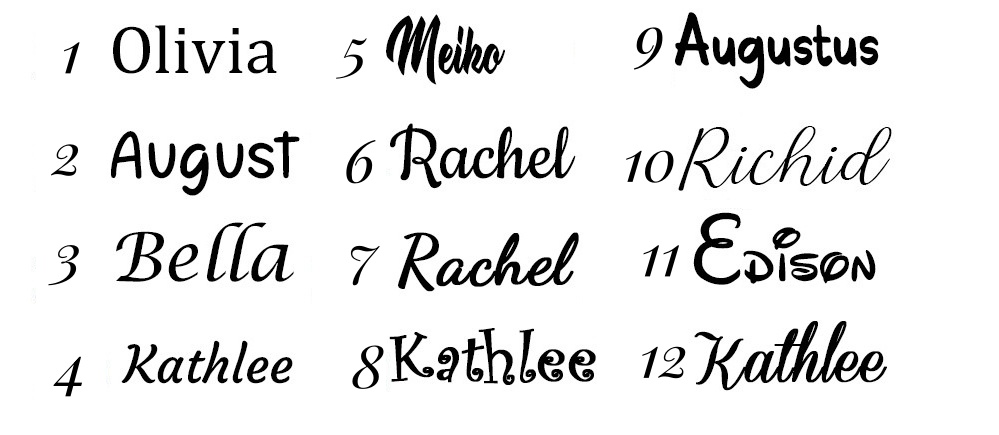 1 Olivia
2 August
3 Bella
4 Kathlee
5 Meiko
6 Rachel
7 Rachel
8 Kathlee
9 Augustus
10 Richid
11 Edison
12 Kathlee